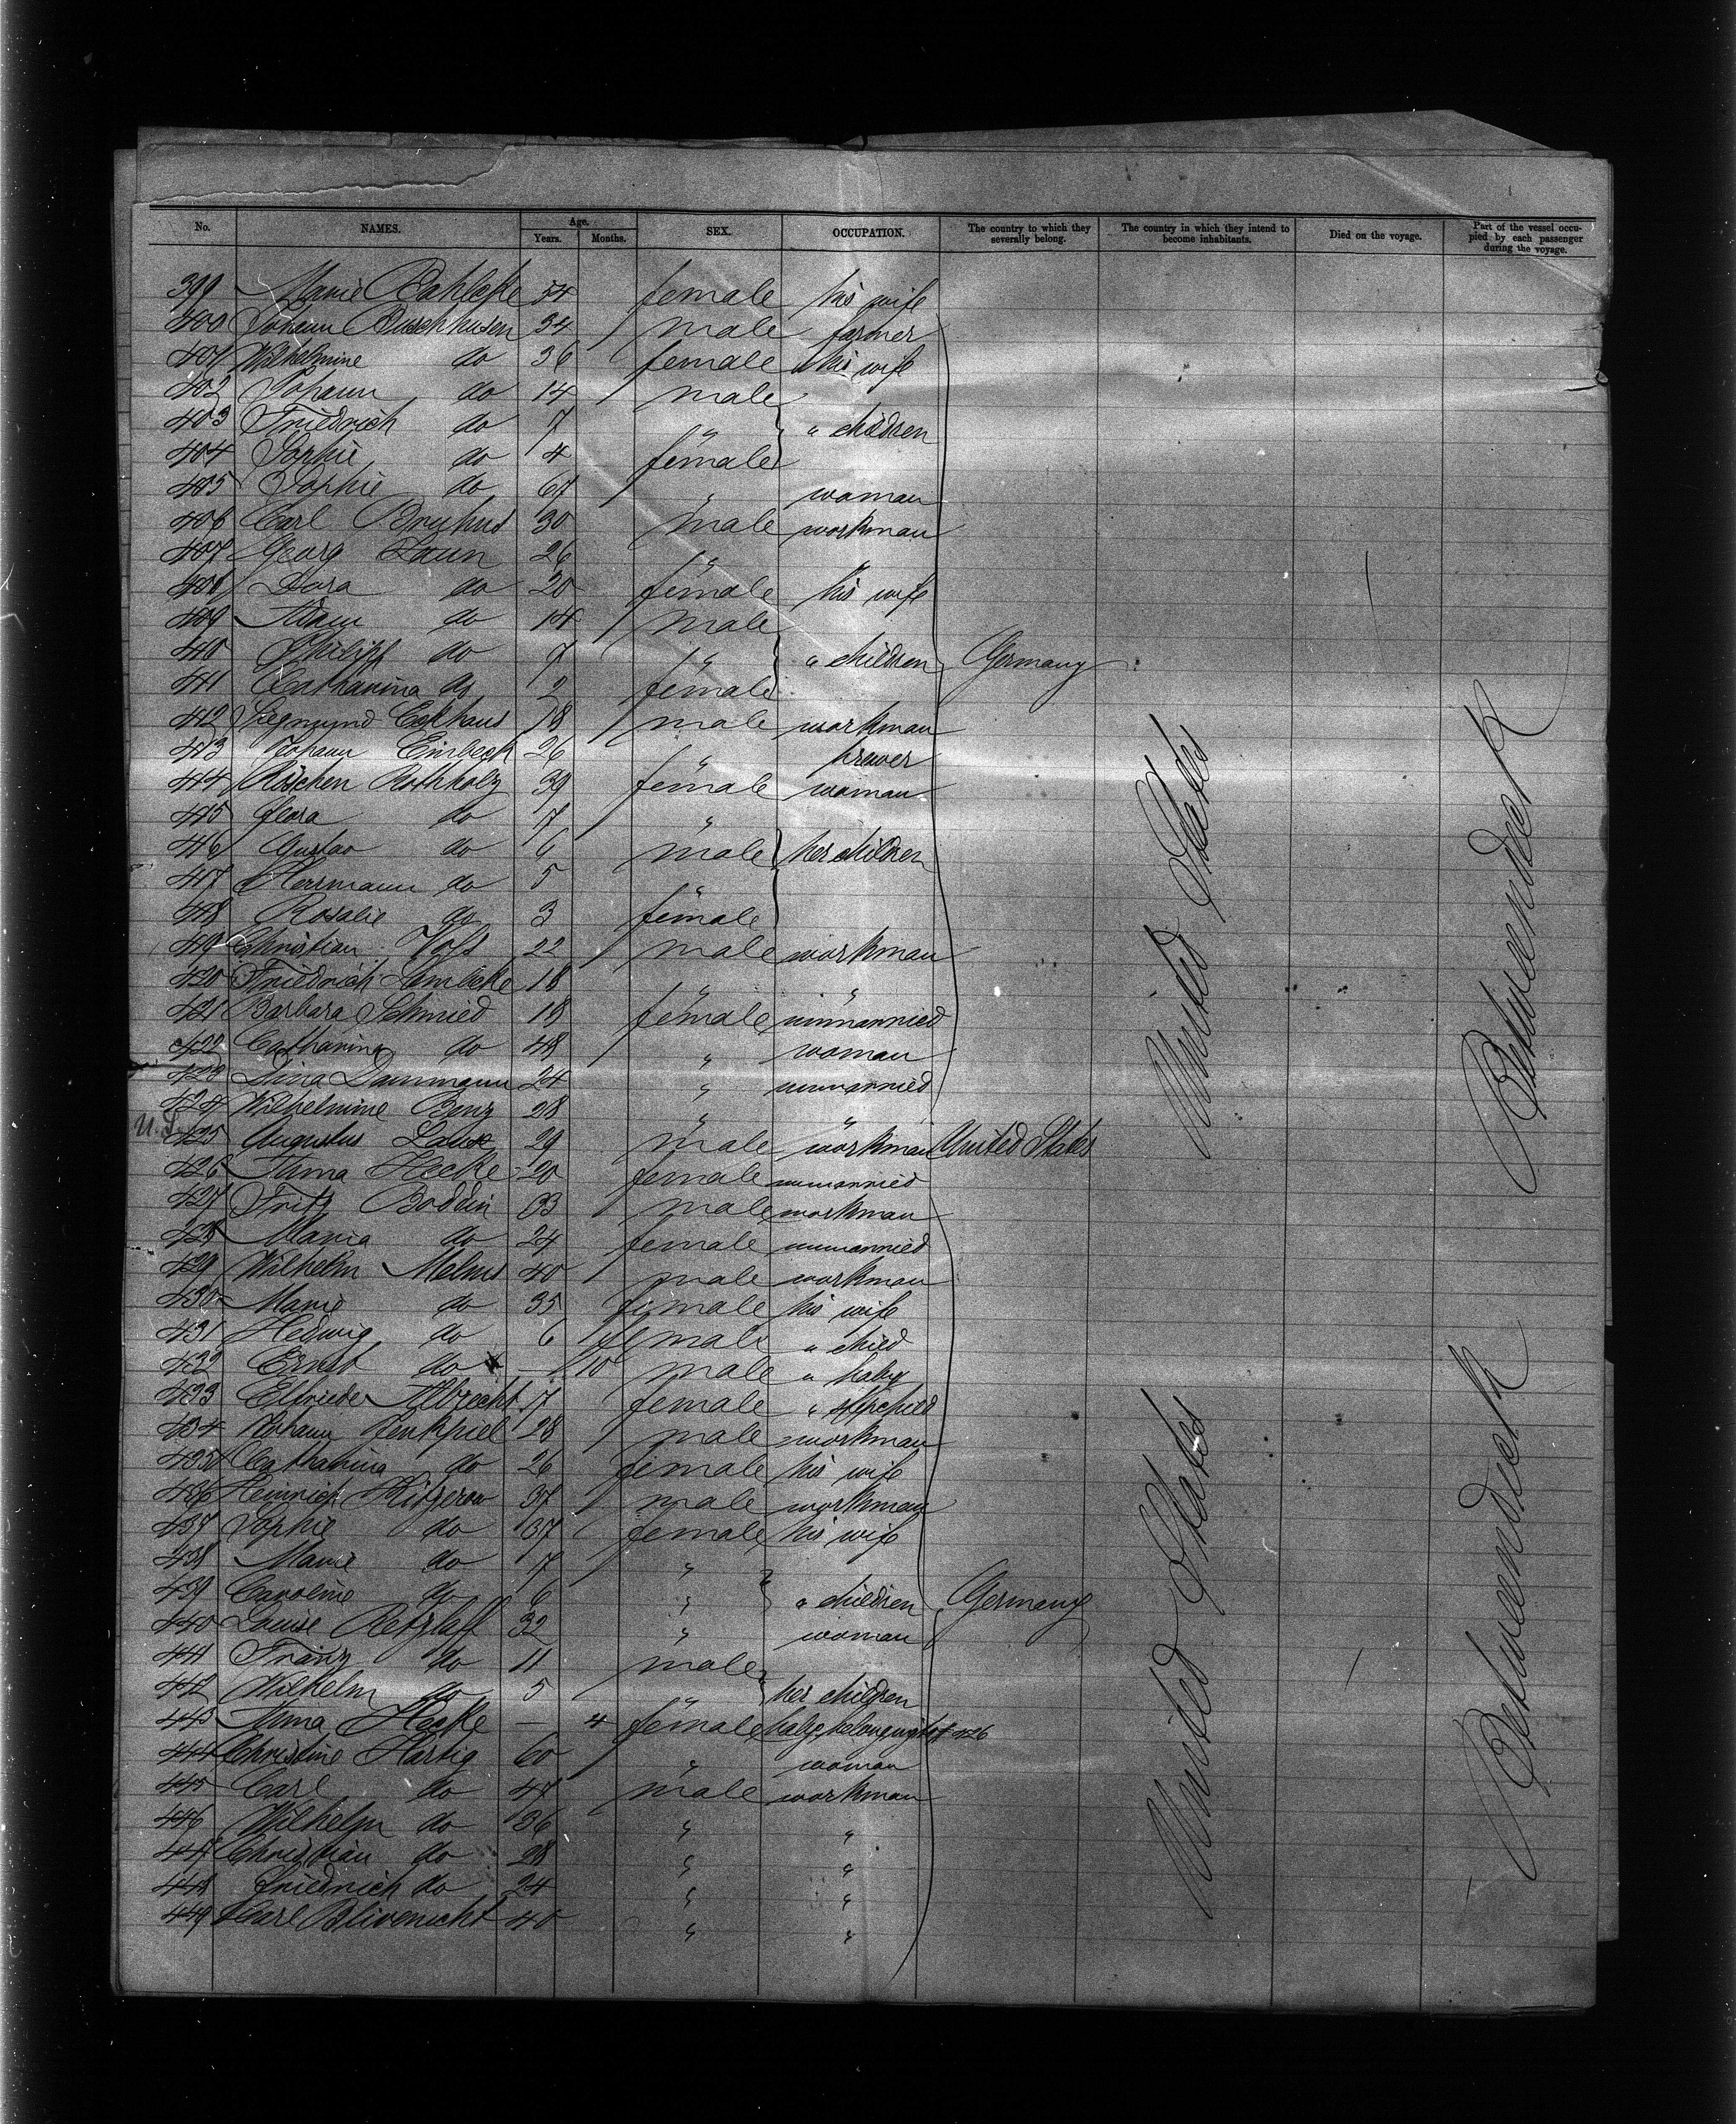 No. NAMES. Age. Years. Months. SEX. OCCUPATION. The country to which they severally belong. The country in which they intend to become inhabitants. Died on the voyage. Part of the vessel occupied by each passenger during the voyage.
399 Marie Bahlcke 54 female his wife
400 Johann Buschhusen 34 male farmer
401 Wilhelmine do 36 female his wife
402 Johann do 14 male
403 Friedrich do 7 " " children
404 Sophie do 4 female
405 Sophie do 67 " woman
406 Carl Bruhns 30 male workman
407 Georg Laun 26 " "
408 Dora do 20 female his wife
409 Adam do 14 male
410 Philipp do 7 " " children Germany
411 Catharina do 2 female
412 Siegmund Eckhaus 18 male workman
413 Johann Einbeck 26 " brewer
414 Röschen Rothholz 39 female woman
415 Flora do 7 "
416 Gustav do 6 male her children
417 Herrmann do 5 "
418 Rosalie do 3 female
419 Christian Voss 22 male workman
420 Friedrich Lembcke 18 " "
421 Barbara Schmied 19 female unmarried
422 Catharina do 48 " woman
423 Dina Dammann 24 " unmarried
424 Wilhelmine Benz 28 " "
U.S. 425 Augustus 29 male workman United States
426 Hecke 20 female unmarried
427 Fritz Boddin 33 male workman
428 Maria do 24 female unmarried
429 Wilhelm Melms 40 male workman
430 Marie do 35 female his wife
431 Hedwig do 6 female " child
432 Ernst do — 10 male " baby
433 Elfriede Albrecht 7 female " stepchild
434 Johann Jenkpiel 28 male workman
435 Catharina do 26 female his wife
436 Heinrich 37 male workman
437 Sophie do 37 female his wife
438 Marie do 7 "
439 Caroline do 6 " " children Germany
440 Louise Retzlaff 32 " woman
441 Franz do 11 male
442 Wilhelm do 5 " her children
443 Hecke — 4 female baby belonging to 426
444 Christine Hartig 60 " woman
445 Carl do 47 male workman
446 Wilhelm do 36 " "
447 Christian do 28 " "
448 Friedrich do 24 " "
449 Carl Blivenicht 40 " "
United States
Betweendeck
United States
Betweendeck